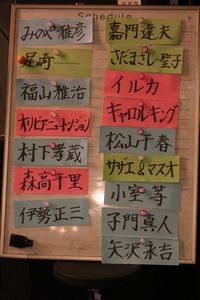 Schedule
みのや雅彦
尾崎…………
福山雅治
オリビア=ニュートンジョン
村下孝蔵
森高千里
伊勢正三
嘉門達夫
さだまさし・聖子
イルカ
キャロルキング
松山千春
サザエ&マスオ
小室等
子門真人
矢沢永吉